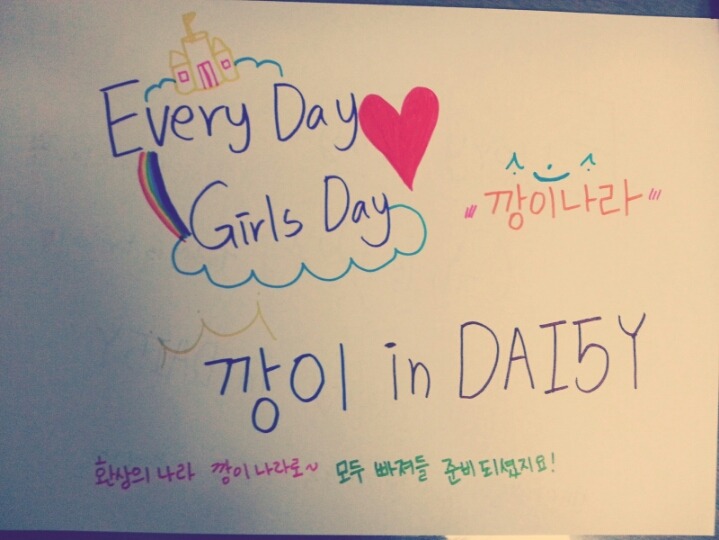 Every Day
Girls Day
"깡이나라"
깡이 in DAI5Y
환상의 나라 깡이나라로~ 모두 빠져들 준비되셨지요!